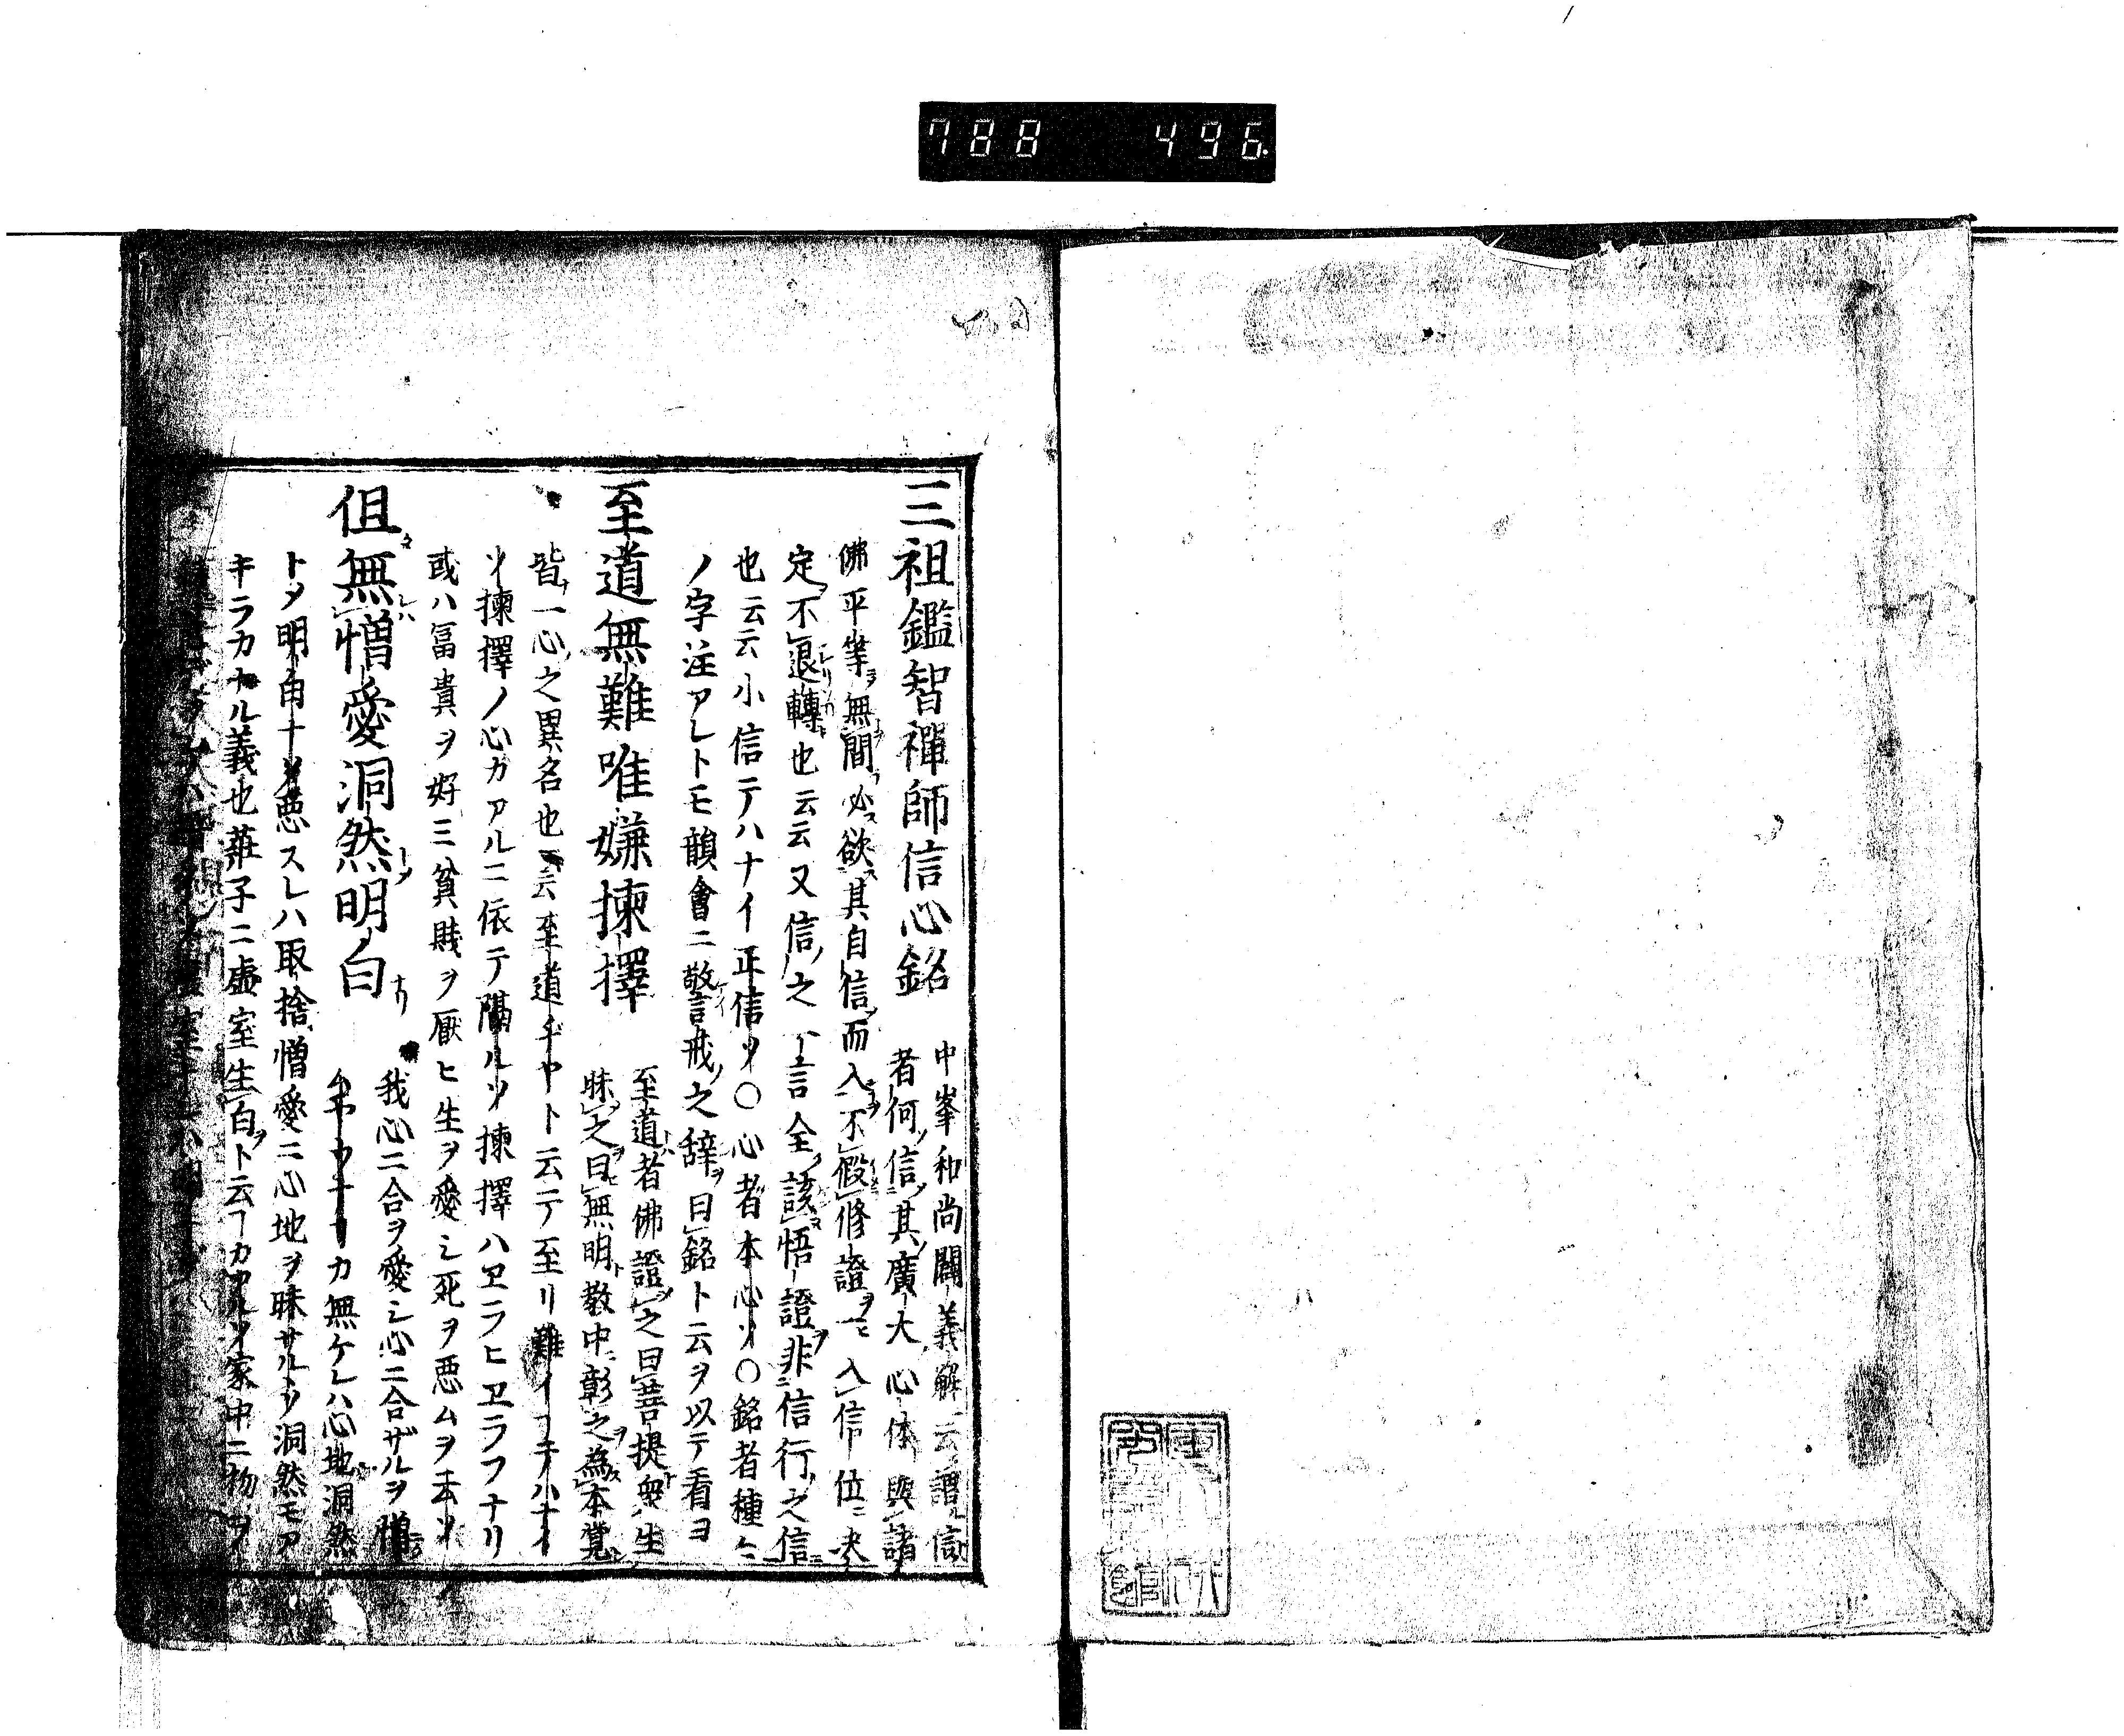 788 496
三祖鑑智禪師信心銘
中峯和尚闢義解云謂信
者何信其廣大心体與諸
佛平等無間必欲其自信而入不假修證一入信位決
定不退轉也云云又信之一言全該悟證非信行之信
也云云小信テハナイ正信ソ〇心者本心ソ〇銘者種〻
ノ字注アレトモ韻會ニ警戒之辞曰銘ト云ヲ以テ看ヨ
至道無難唯嫌揀擇
至道者佛證之曰菩提衆生
昧之曰無明教中彰之為本覚
皆一心之異名也云至道ヂヤト云テ至リ難イヿテハナイ
ソ揀擇ノ心カアルニ依テ隔ルソ揀擇ハヱラヒヱラフナリ
或ハ冨貴ヲ好ミ貧賎ヲ厭ヒ生ヲ愛シ死ヲ悪ムヲ云ソ
但無憎愛洞然明白
我心ニ合ヲ愛シ心ニ合ザルヲ憎
カ無ケレハ心地洞然
トメ明白ナ悪スレハ取捨憎愛ニ心地ヲ昧サルヽソ洞然モア
キラカナル義也莊子ニ虚室生白ト云ヿカアルソ家中ニ物ヲ